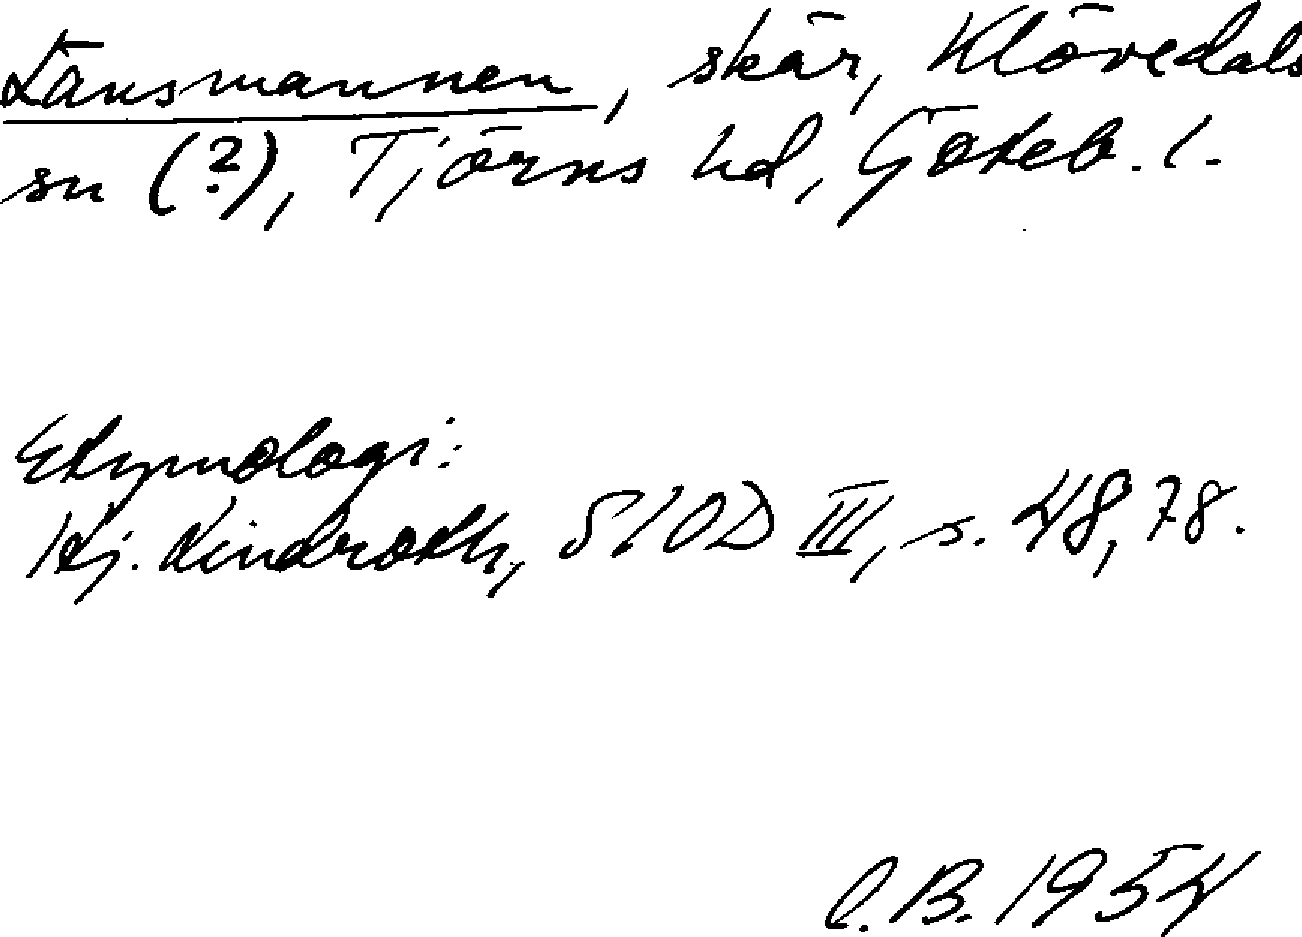 Länsmannen, skär, Klövedals
sn (?), Tjörns hd, Göteb. l.
Etymologi:
Hj. Lindroth, SIOD III, s. 48, 78.
C.B. 1954